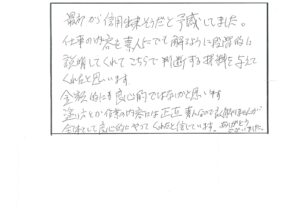 最初から信用出来そうだと予感していました。
仕事の内容を素人にでも解るように段階的に
説明してくれてこちらで判断する材料を与えて
くれたと思います
金額的にも良心的ではないかと思います
塗り方とか作業の内容には正直素人なので良く解りませんが
全体として良心的にやってくれたと信じています。ありがとう
ございました。